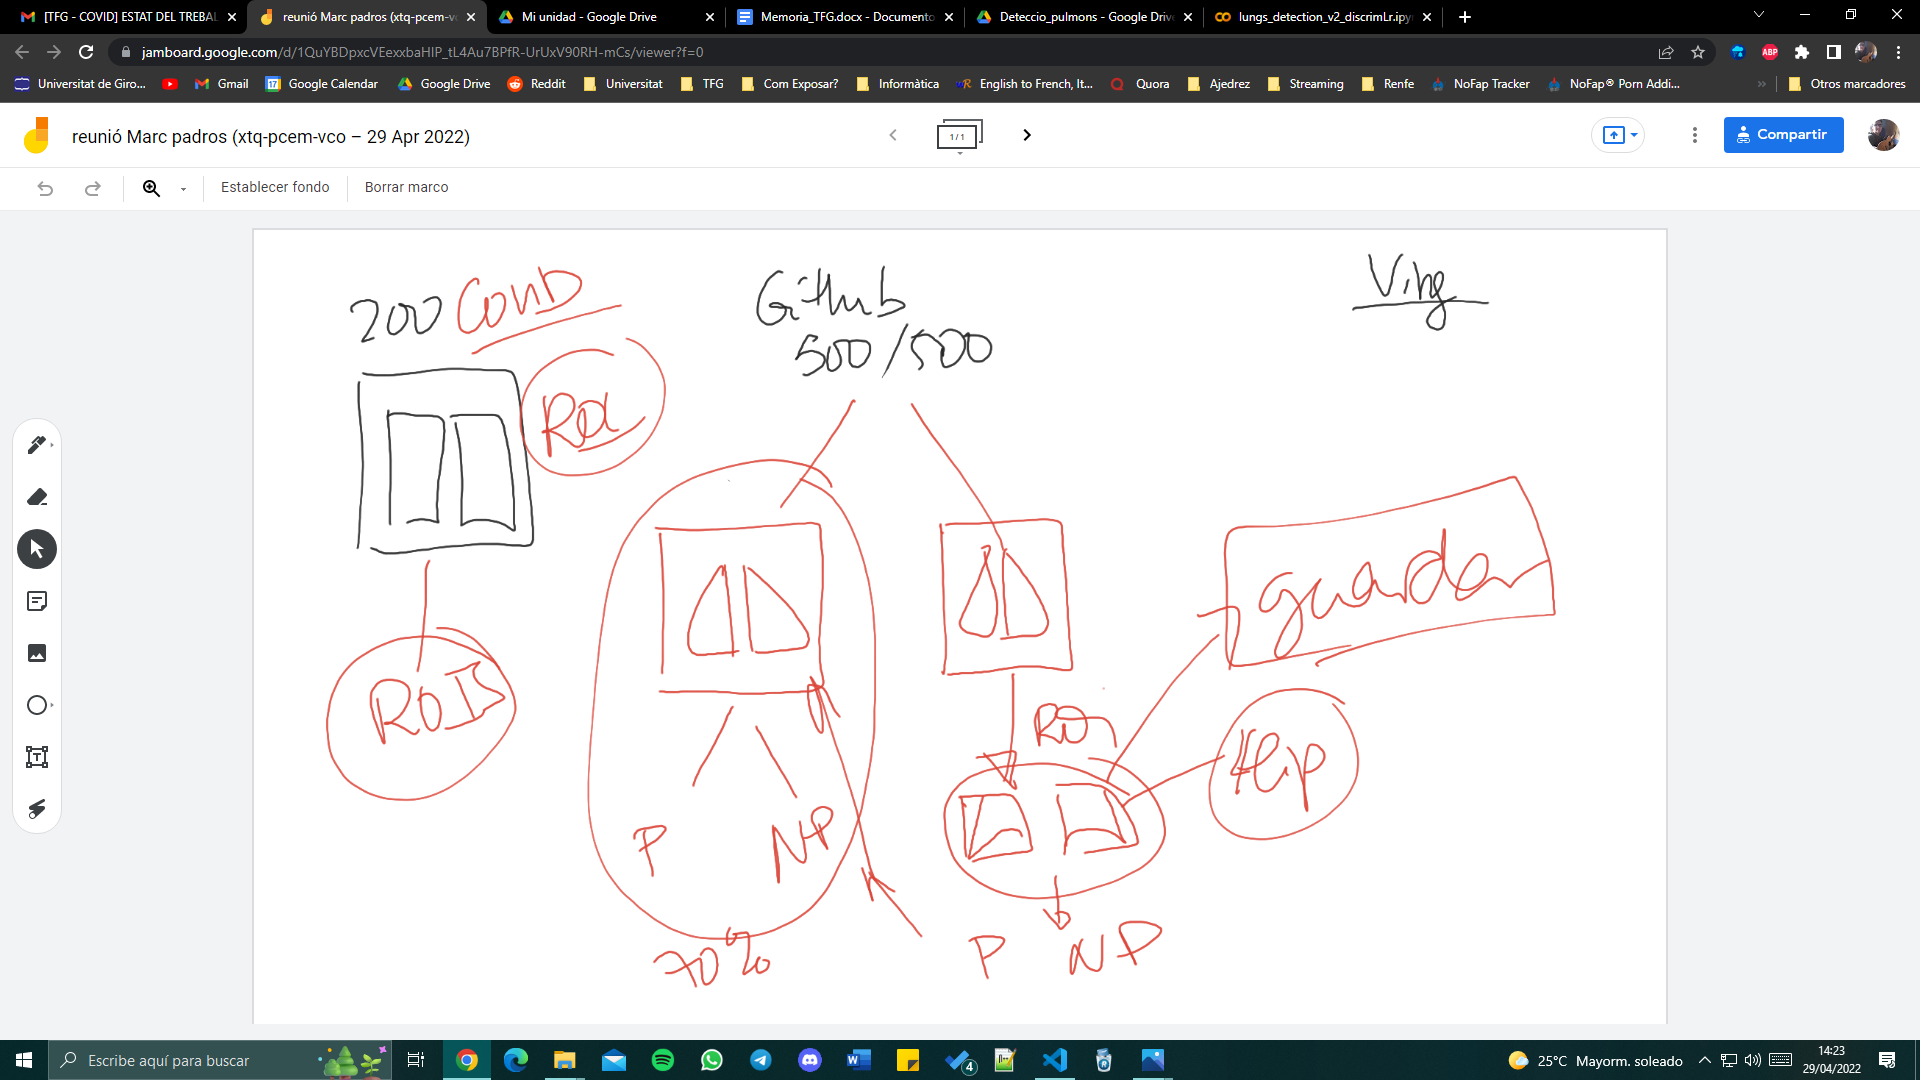 [TFG - COVID] ESTAT DEL TREBAL
reunió Marc padros (xtq-pcem-v
Mi unidad - Google Drive
Memoria_TFG.docx - Documento
Deteccio_pulmons - Google Driv
lungs_detection_v2_discrimLr.ipy
jamboard.google.com/d/1QuYBDpxcVEexxbaHIP_tL4Au7BPfR-UrUxV90RH-mCs/viewer?f=0
ABP
Universitat de Giro...
Gmail
17
Google Calendar
Google Drive
Reddit
Universitat
TFG
Com Exposar?
Informàtica
English to French, It...
Quora
Ajedrez
Streaming
Renfe
NoFap Tracker
NoFap® Porn Addi...
Otros marcadores
reunió Marc padros (xtq-pcem-vco – 29 Apr 2022)
1/1
Compartir
Establecer fondo
Borrar marco
200 Covid
Github
500/500
ROI
guardar
ROIS
ROI
flip
P
NP
70%
P NP
Escribe aquí para buscar
4
25°C Mayorm. soleado
14:23
29/04/2022